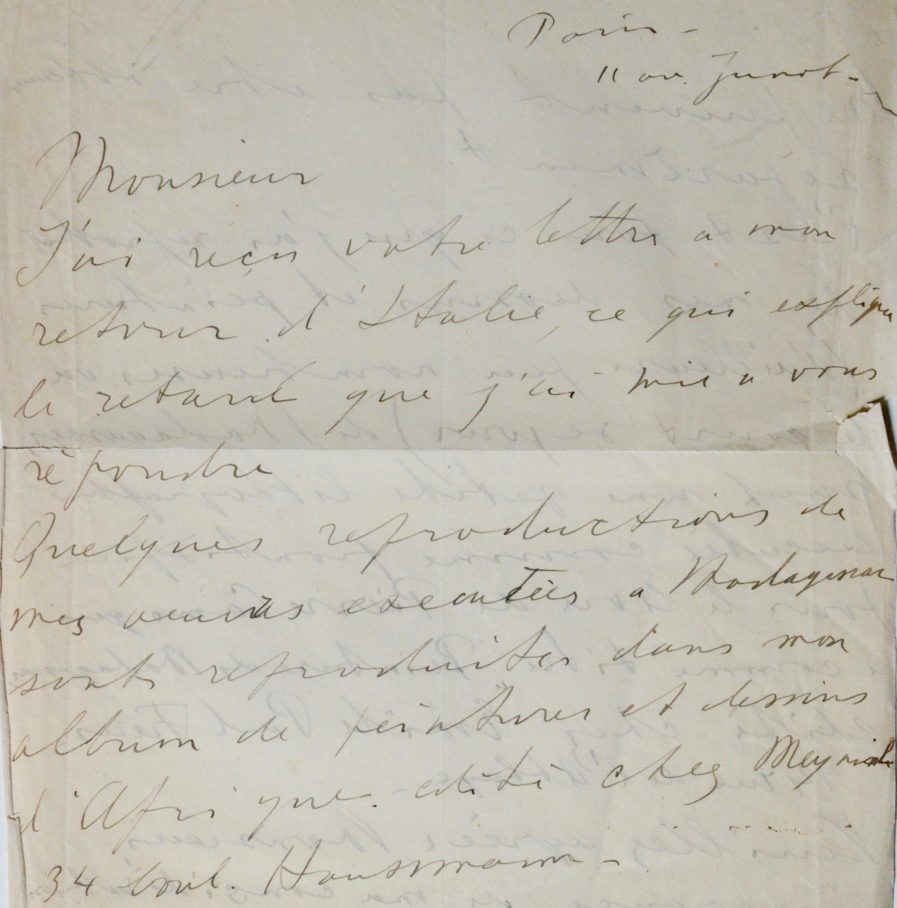 Paris -
11 av. Junot -
Monsieur
J'ai reçu votre lettre a mon
retour d'Italie, ce qui explique
le retard que j'ai mis a vous
répondre
Quelques reproductions de
mes œuvres executées a Madagascar
sont reproduites dans mon
album de peintures et dessins
d'Afrique. edité chez Meynial
34 boul. Haussmann -